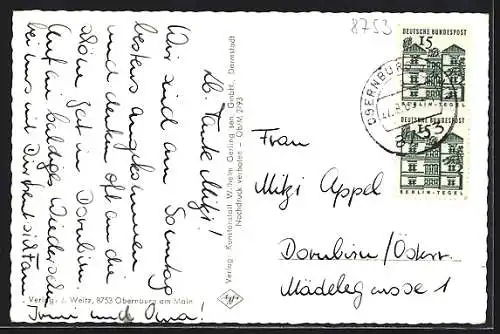 8753
DEUTSCHE BUNDESPOST
15
BERLIN-TEGEL
DEUTSCHE BUNDESPOST
15
BERLIN-TEGEL
OBERNBURG
Lb. Tante Mitzi!
Wir sind am Sonntag
bestens angekommen
und denken oft an die
schöne Zeit in Dornbirn.
Auf ein baldiges Wiedersehn
bei uns mit
Irmi und Oma!
Verlag: Kunstanstalt Wilhelm Gerling sen. GmbH., Darmstadt
Nachdruck verboten - Ob/M 2093
Agfa
Verlag: J. Weitz, 8753 Obernburg am Main
Frau
Mitzi Appel
Dornbirn/Österr.
Mädelegasse 1